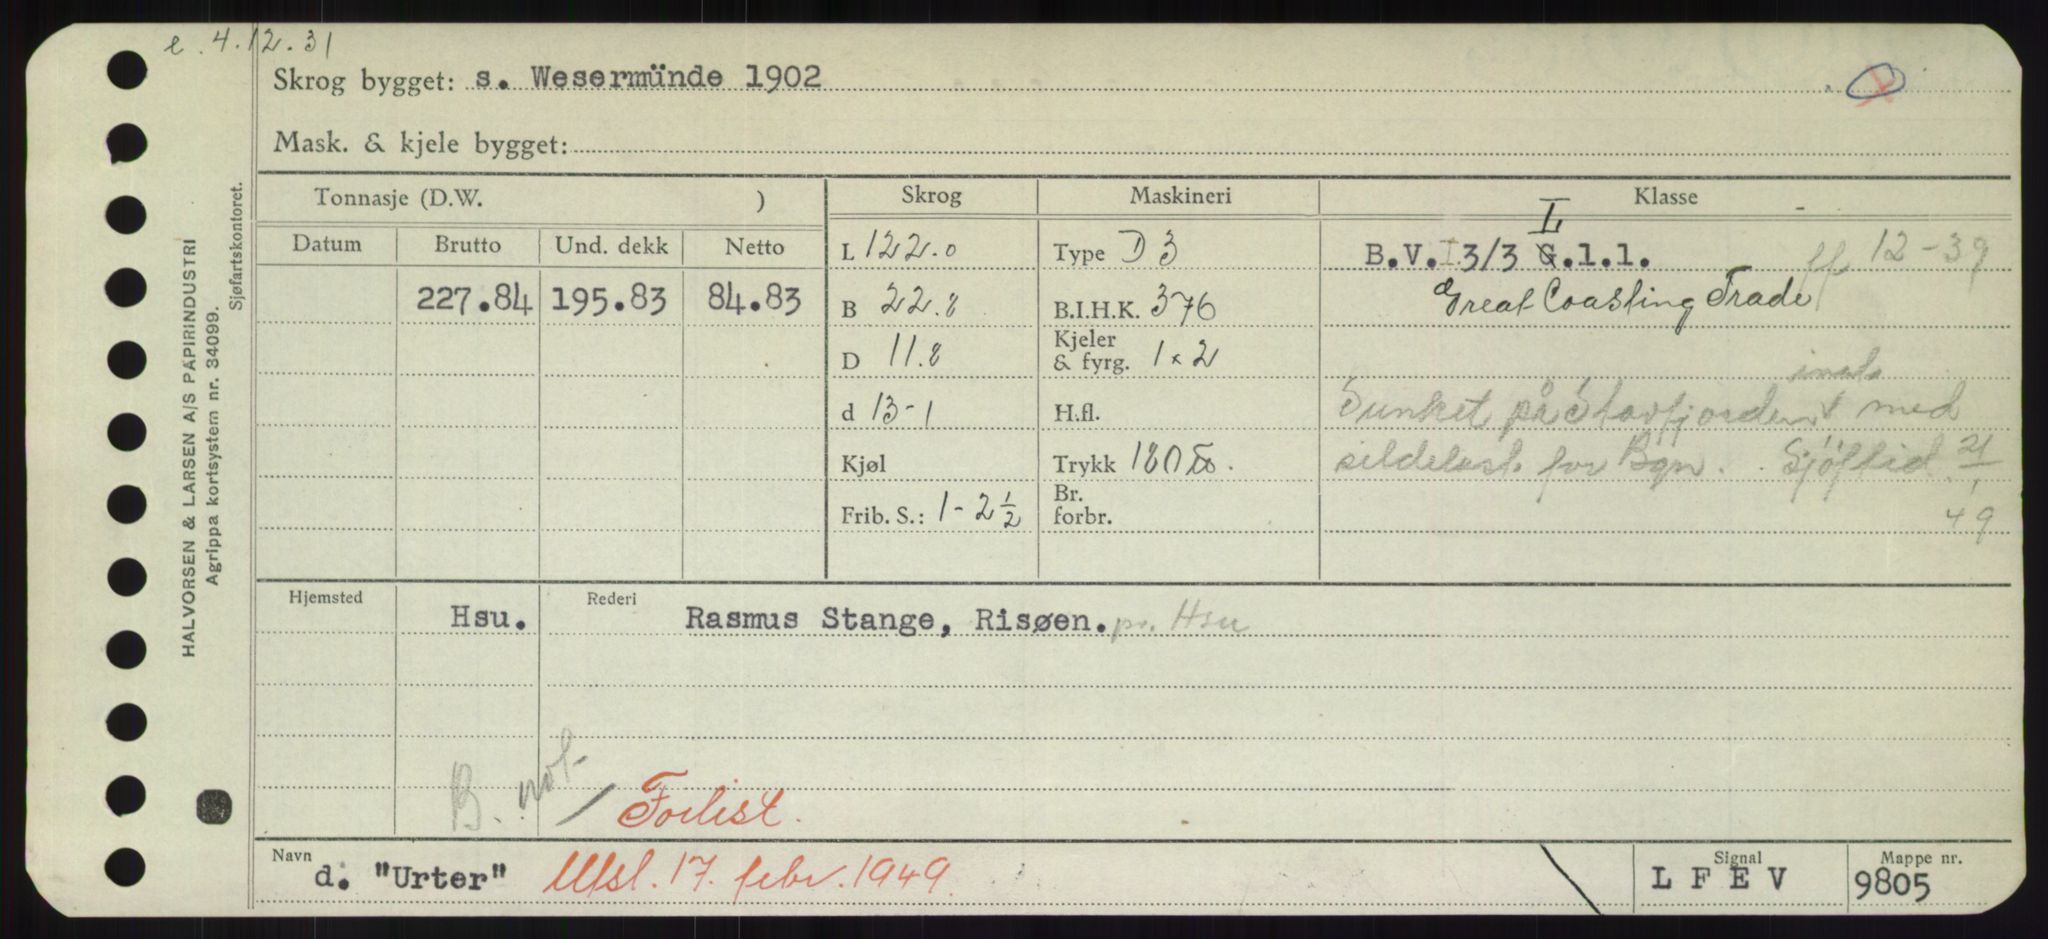 e. 4.12.31
Skrog bygget: s. Wesermünde 1902
Mask. & kjele bygget:
Tonnasje (D.W. ) Skrog Maskineri Klasse
Datum Brutto Und. dekk Netto
227.84 195.83 84.83
L 122.0
B 22.8
D 11.8
d 13-1
Kjøl
Frib. S.: 1-2½
Type D 3
B.I.H.K. 376
Kjeler & fyrg. 1x2
H.fl.
Trykk 180
Br. forbr.
L
B.V. I 3/3 G.1.1. 12-39
Great Coasting Trade
Sunket på Stavfjorden med
sildelast for Bgn. Sjöftid. 21/1
49
Hjemsted Rederi
Hsu. Rasmus Stange, Risøen. pr. Hsu
B. not
Forlist.
Navn Signal Mappe nr.
d. "Urter" Utsl. 17. febr. 1949. L F E V 9805
HALVORSEN & LARSEN A/S PAPIRINDUSTRI
Agrippa kortsystem nr. 34099.
Sjøfartskontoret.